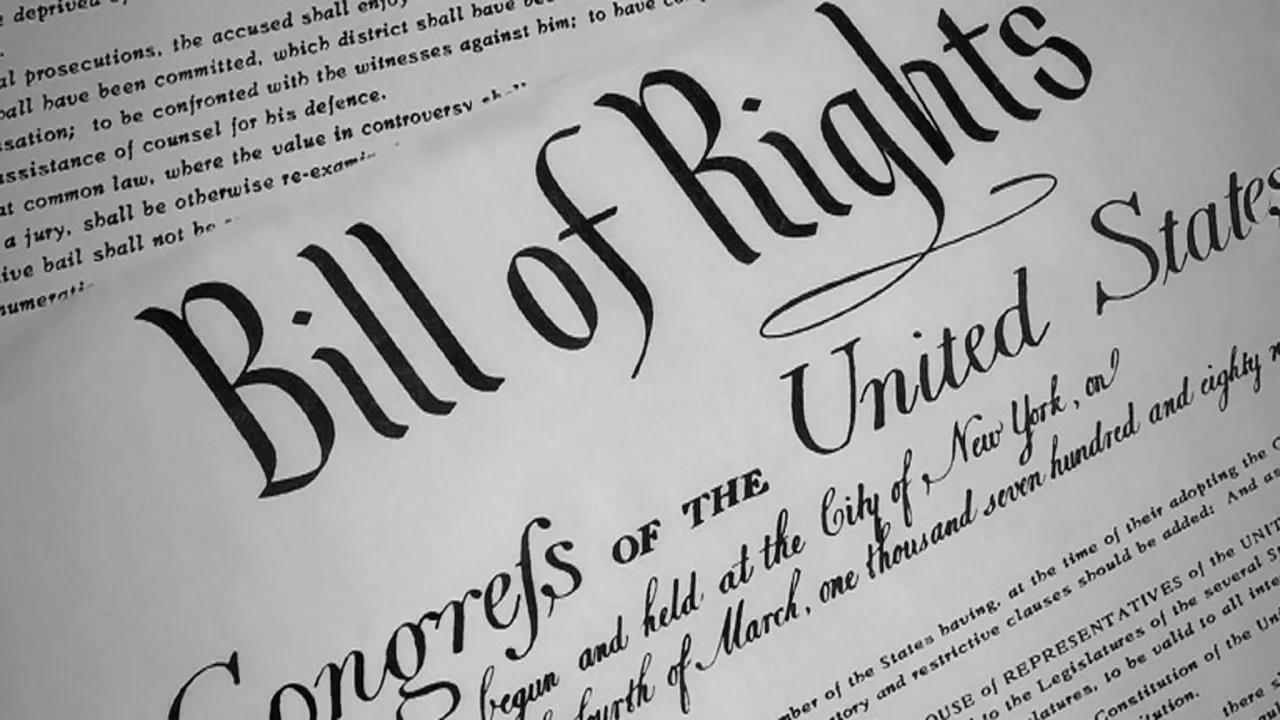 deprived
prosecutions, the accused shall enjoy
have been committed, which district shall have
to be confronted with the witnesses against him; to have
assistance of counsel for his defence.
at common law, where the value in controversy
a jury, shall be otherwise
bail shall not be
Bill of Rights
Congreſs OF THE United States
begun and held at the City of New York, on
of March, one thousand seven hundred and eighty
of the States having, at the time of their adopting the
and restrictive clauses should be added: And
of REPRESENTATIVES of the
to the Legislatures of the several
to be valid to all
Constitution of the
there